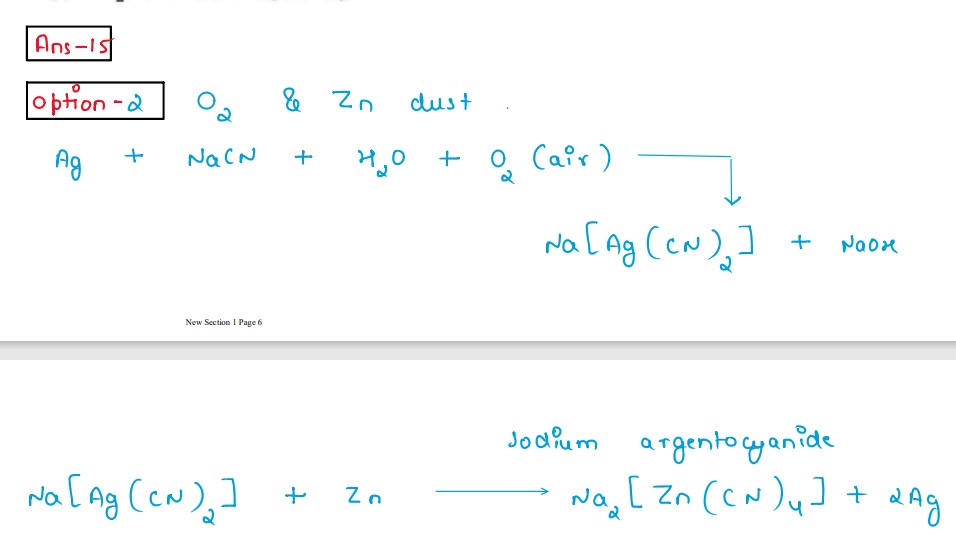 Ans-15
option-2 O₂ & Zn dust .
Ag + NaCN + H₂O + O₂ (air) ⟶
Na[Ag(CN)₂] + NaOH
New Section 1 Page 6
Sodium argentocyanide
Na[Ag(CN)₂] + Zn ⟶ Na₂[Zn(CN)₄] + 2Ag